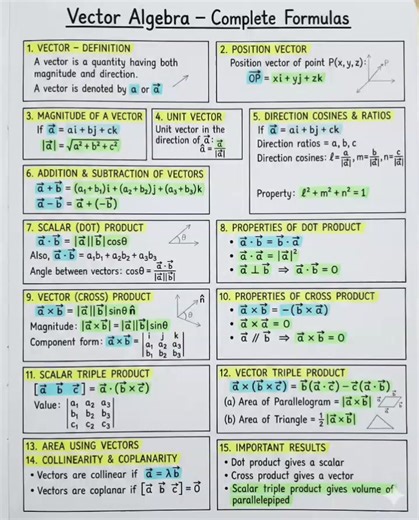 Vector Algebra – Complete Formulas
1. VECTOR – DEFINITION
A vector is a quantity having both
magnitude and direction.
A vector is denoted by a or a⃗
2. POSITION VECTOR
Position vector of point P(x,y,z):
OP⃗ = xi + yj + zk
P
3. MAGNITUDE OF A VECTOR
If a⃗ = ai + bj + ck
|a⃗| = √a² + b² + c²
4. UNIT VECTOR
Unit vector in the
direction of a⃗:
â = a⃗/|a⃗|
5. DIRECTION COSINES & RATIOS
If a⃗ = ai + bj + ck
Direction ratios = a, b, c
Direction cosines: ℓ = a/|a⃗|, m = b/|a⃗|, n = c/|a⃗|
Property: ℓ² + m² + n² = 1
6. ADDITION & SUBTRACTION OF VECTORS
a⃗ + b⃗ = (a₁+b₁)i + (a₂+b₂)j + (a₃+b₃)k
a⃗ – b⃗ = a⃗ + (–b⃗)
7. SCALAR (DOT) PRODUCT
a⃗ · b⃗ = |a⃗||b⃗| cosθ
Also, a⃗ · b⃗ = a₁b₁ + a₂b₂ + a₃b₃
Angle between vectors: cosθ = a⃗ · b⃗/|a⃗||b⃗|
θ
8. PROPERTIES OF DOT PRODUCT
• a⃗ · b⃗ = b⃗ · a⃗
• a⃗ · a⃗ = |a⃗|²
• a⃗ ⊥ b⃗ ⇒ a⃗ · b⃗ = 0
9. VECTOR (CROSS) PRODUCT
a⃗ × b⃗ = |a⃗||b⃗| sinθ n̂
Magnitude: |a⃗ × b⃗| = |a⃗||b⃗| sinθ
Component form: a⃗ × b⃗ = | i j k |
| a₁ a₂ a₃ |
| b₁ b₂ b₃ |
n̂
θ
10. PROPERTIES OF CROSS PRODUCT
• a⃗ × b⃗ = –(b⃗ × a⃗)
• a⃗ × a⃗ = 0
• a⃗ // b⃗ ⇒ a⃗ × b⃗ = 0
11. SCALAR TRIPLE PRODUCT
[a⃗ b⃗ c⃗] = a⃗ · (b⃗ × c⃗)
Value: | a₁ a₂ a₃ |
| b₁ b₂ b₃ |
| c₁ c₂ c₃ |
12. VECTOR TRIPLE PRODUCT
a⃗ × (b⃗ × c⃗) = b⃗(a⃗ · c⃗) – c⃗(a⃗ · b⃗)
(a) Area of Parallelogram = |a⃗ × b⃗|
(b) Area of Triangle = ½ |a⃗ × b⃗|
13. AREA USING VECTORS
14. COLLINEARITY & COPLANARITY
• Vectors are collinear if a⃗ = λb⃗
• Vectors are coplanar if [a⃗ b⃗ c⃗] = 0⃗
15. IMPORTANT RESULTS
• Dot product gives a scalar
• Cross product gives a vector
• Scalar triple product gives volume of
parallelepiped